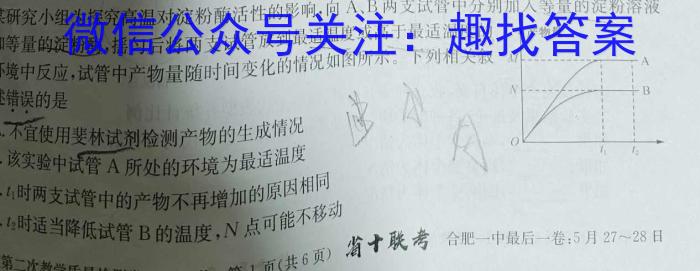 某研究小组为探究高温对淀粉酶活性的影响，向A、B两支试管中分别加入等量的淀粉溶液
和等量的淀粉
微信公众号关注：趣找答案
环境中反应，试管中产物量随时间变化的情况如图所示。下列相关叙
述错误的是
M
A
N
B
O
t₁
t₂
.不宜使用斐林试剂检测产物的生成情况
.该实验中试管A所处的环境为最适温度
.t₁时两支试管中的产物不再增加的原因相同
.t₂时适当降低试管B的温度，N点可能不移动
省十联考 合肥一中最后一卷：5月27～28日
第二次教学质量
页(共6页)